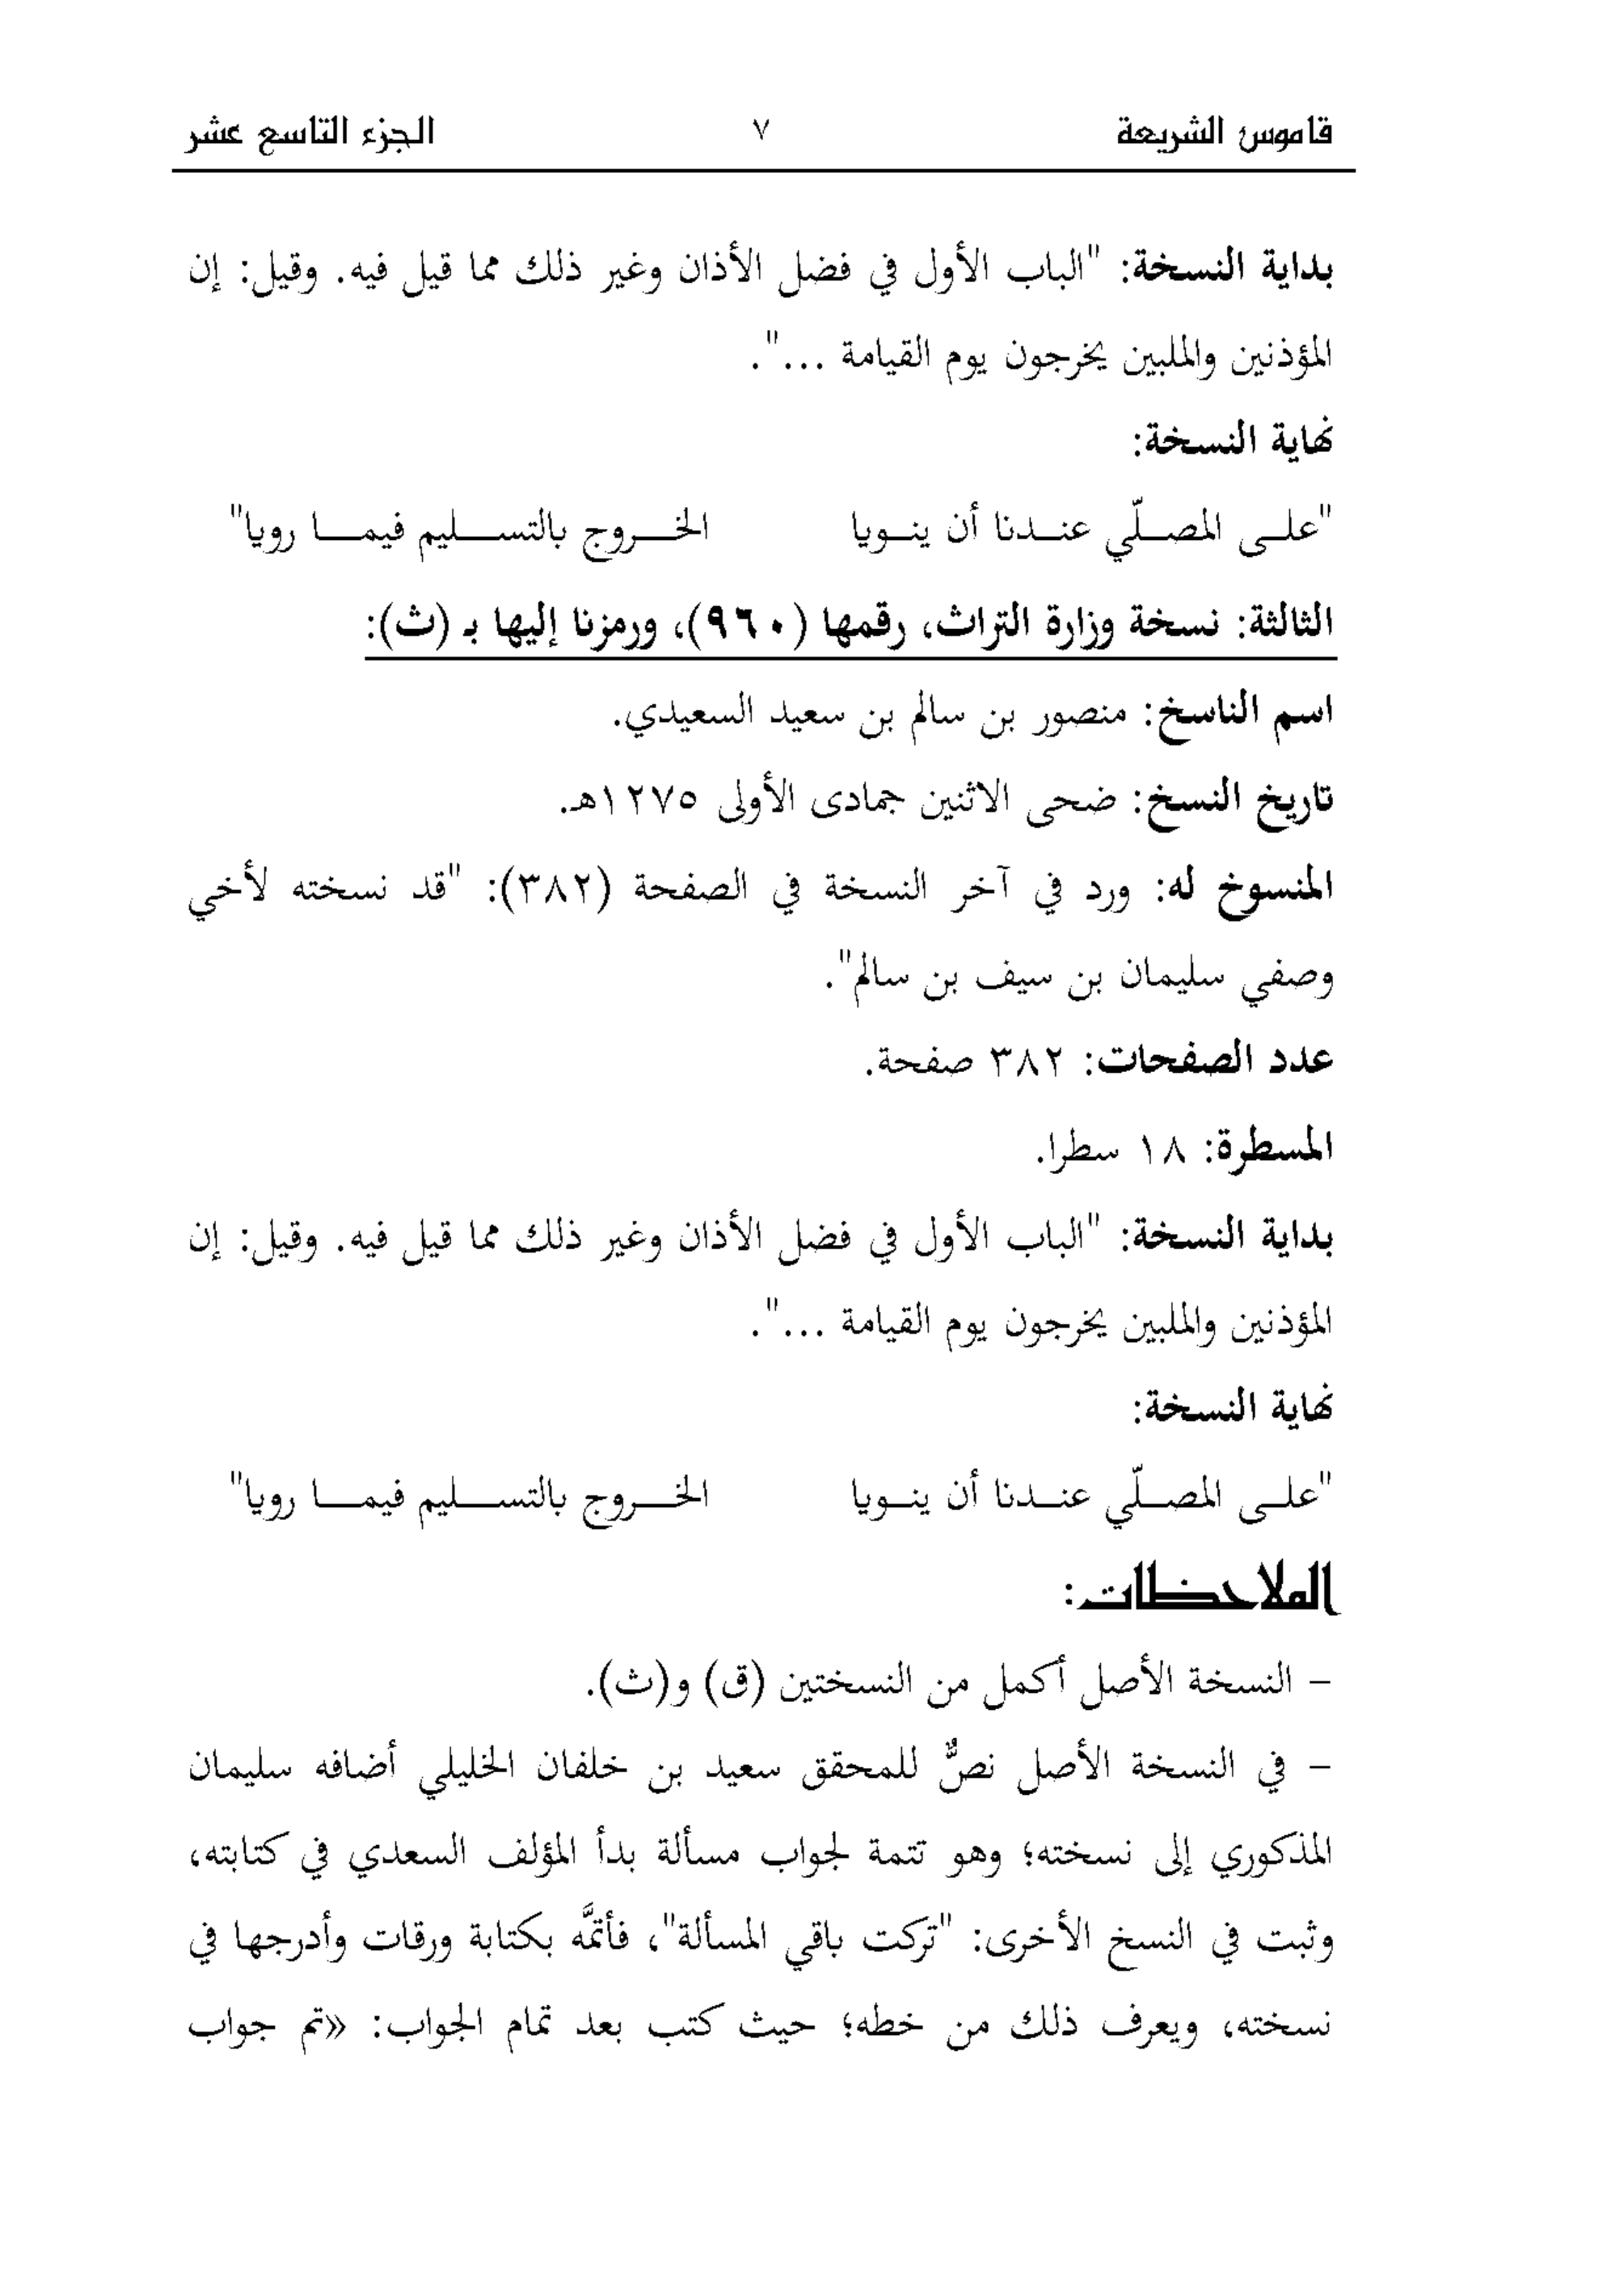 قاموس الشريعة ٧ الجزء التاسع عشر
بداية النسخة: "الباب الأول في فضل الأذان وغير ذلك مما قيل فيه. وقيل: إن
المؤذنين والملبين يخرجون يوم القيامة ...".
نهاية النسخة:
"علـى المصـلّي عنـدنا أن ينـويا الخـروج بالتسـليم فيمـا رويا"
الثالثة: نسخة وزارة التراث، رقمها (٩٦٠)، ورمزنا إليها بـ (ث):
اسم الناسخ: منصور بن سالم بن سعيد السعيدي.
تاريخ النسخ: ضحى الاثنين جمادى الأولى ١٢٧٥هـ.
المنسوخ له: ورد في آخر النسخة في الصفحة (٣٨٢): "قد نسخته لأخي
وصفي سليمان بن سيف بن سالم".
عدد الصفحات: ٣٨٢ صفحة.
المسطرة: ١٨ سطرا.
بداية النسخة: "الباب الأول في فضل الأذان وغير ذلك مما قيل فيه. وقيل: إن
المؤذنين والملبين يخرجون يوم القيامة ...".
نهاية النسخة:
"علـى المصـلّي عنـدنا أن ينـويا الخـروج بالتسـليم فيمـا رويا"
الملاحظات:
– النسخة الأصل أكمل من النسختين (ق) و(ث).
– في النسخة الأصل نصٌّ للمحقق سعيد بن خلفان الخليلي أضافه سليمان
المذكوري إلى نسخته؛ وهو تتمة لجواب مسألة بدأ المؤلف السعدي في كتابته،
وثبت في النسخ الأخرى: "تركت باقي المسألة"، فأتمَّه بكتابة ورقات وأدرجها في
نسخته، ويعرف ذلك من خطه؛ حيث كتب بعد تمام الجواب: «تم جواب